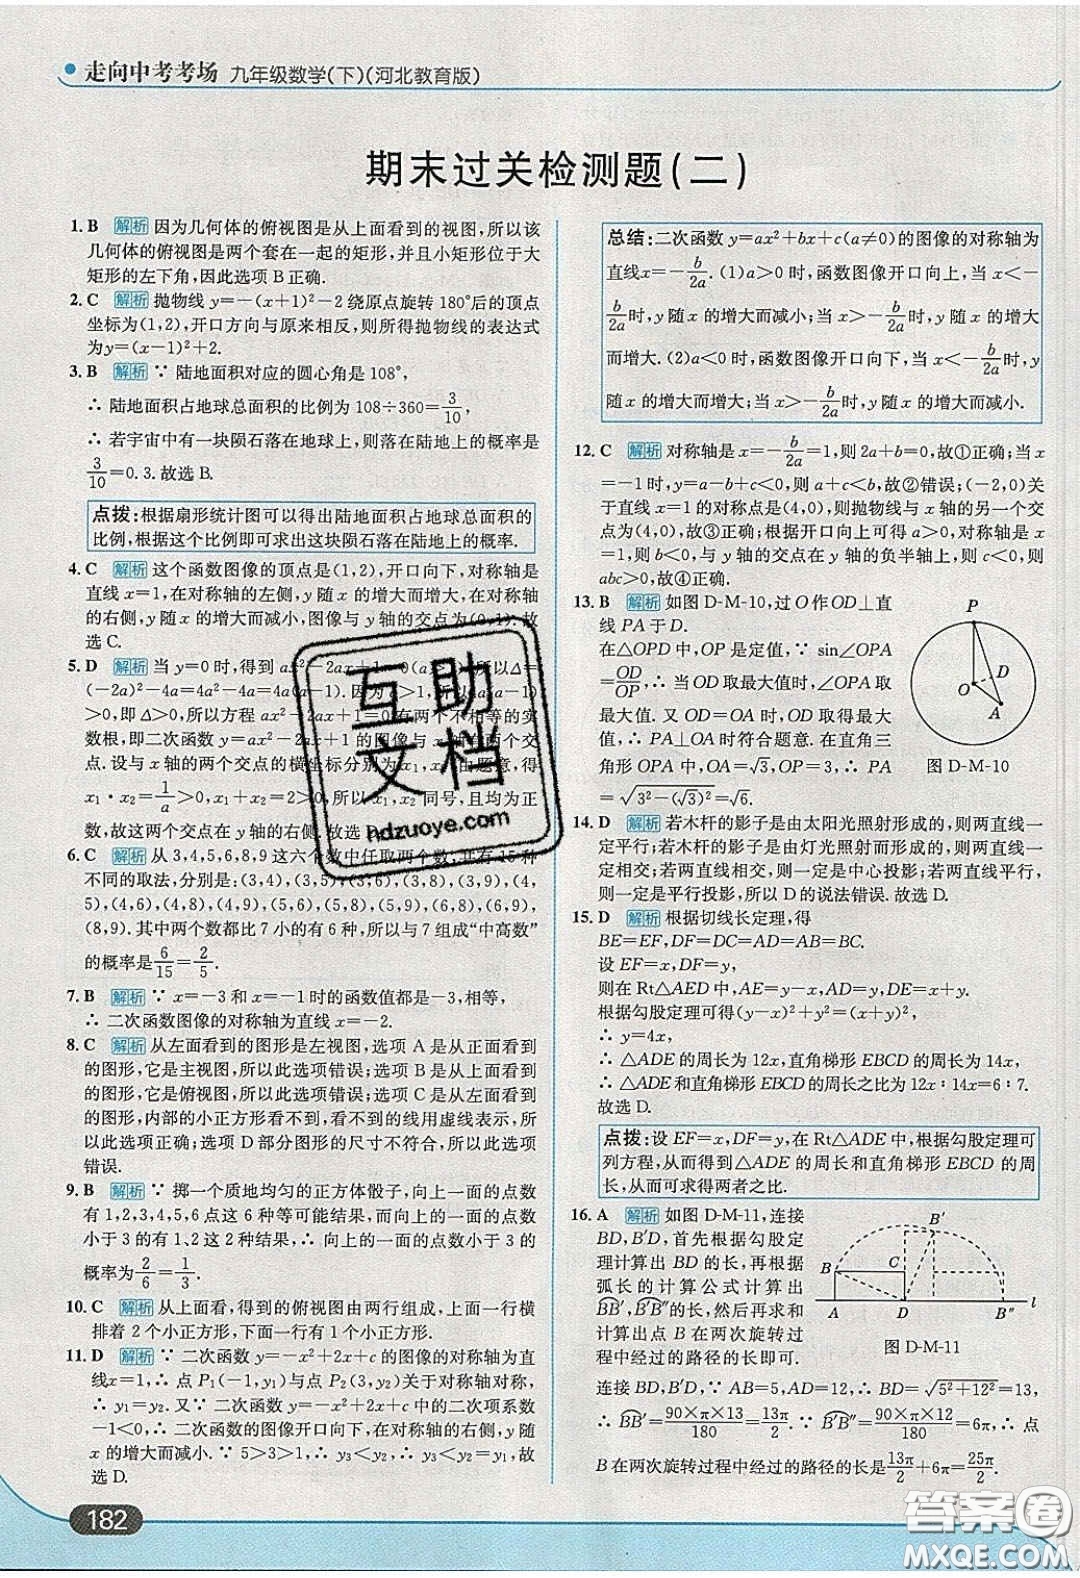 走向中考考场 九年级数学(下)(河北教育版)
期末过关检测题(二)
1. B 解析 因为几何体的俯视图是从上面看到的视图,所以该
几何体的俯视图是两个套在一起的矩形,并且小矩形位于大
矩形的左下角,因此选项 B 正确.
2. C 解析 抛物线 y=-(x+1)²-2 绕原点旋转 180°后的顶点
坐标为(1,2),开口方向与原来相反,则所得抛物线的表达式
为 y=(x-1)²+2.
3. B 解析 ∵ 陆地面积对应的圆心角是 108°,
∴ 陆地面积占地球总面积的比例为 108÷360=3/10,
∴ 若宇宙中有一块陨石落在地球上,则落在陆地上的概率是
3/10=0.3.故选 B.
点拨:根据扇形统计图可以得出陆地面积占地球总面积的
比例,根据这个比例即可求出这块陨石落在陆地上的概率.
4. C 解析 这个函数图像的顶点是(1,2),开口向下,对称轴是
直线 x=1,在对称轴的左侧,y 随 x 的增大而增大,在对称轴
的右侧,y 随 x 的增大而减小,图像与 y 轴的交点为(0,1).故
选 C.
5. D 解析 当 y=0 时,得到 ax²-2ax+1=0(a>1),所以 Δ=
(-2a)²-4a=4a(a-1).因为 a>1,所以 4a(a-1)
>0,即 Δ>0,所以方程 ax²-2ax+1=0 有两个不相等的实
数根,即二次函数 y=ax²-2ax+1 的图像与 x 轴有两个交
点.设与 x 轴的两个交点的横坐标分别为 x₁,x₂,由题意,得
x₁·x₂=1/a>0,x₁+x₂=2>0,所以 x₁,x₂ 同号,且均为正
数,故这两个交点在 y 轴的右侧.故选
6. C 解析 从 3,4,5,6,8,9 这六个数中任取两个数,共有 15 种
不同的取法,分别是:(3,4),(3,5),(3,6),(3,8),(3,9),(4,
5),(4,6),(4,8),(4,9),(5,6),(5,8),(5,9),(6,8),(6,9),
(8,9).其中两个数都比 7 小的有 6 种,所以与 7 组成“中高数”
的概率是6/15=2/5.
7. B 解析 ∵ x=-3 和 x=-1 时的函数值都是-3,相等,
∴ 二次函数图像的对称轴为直线 x=-2.
8. C 解析 从左面看到的图形是左视图,选项 A 是从正面看到
的图形,它是主视图,所以此选项错误;选项 B 是从上面看到
的图形,它是俯视图,所以此选项错误;选项 C 是从左面看到
的图形,内部的小正方形看不到,看不到的线用虚线表示,所
以此选项正确;选项 D 部分图形的尺寸不符合,所以此选项
错误.
9. B 解析 ∵ 掷一个质地均匀的正方体骰子,向上一面的点数
有 1,2,3,4,5,6 点这 6 种等可能结果,而向上的一面的点数
小于 3 的有 1,2 这 2 种结果,∴ 向上的一面的点数小于 3 的
概率为2/6=1/3.
10. C 解析 从上面看,得到的俯视图由两行组成,上面一行横
排着 2 个小正方形,下面一行有 1 个小正方形.
11. D 解析 ∵ 二次函数 y=-x²+2x+c 的图像的对称轴为直
线x=1,∴ 点 P₁(-1,y₁)与点 P₂(3,y₂)关于对称轴对称,
∴ y₁=y₂.又∵ 二次函数 y=-x²+2x+c 中的二次项系数
-1<0,∴ 二次函数的图像开口向下,在对称轴的右侧,y 随
x 的增大而减小.∵ 5>3>1,∴ y₃<y₂,∴ y₃<y₂=y₁,故
选 D.
总结:二次函数 y=ax²+bx+c(a≠0)的图像的对称轴为
直线x=-b/2a.(1)a>0 时,函数图像开口向上,当 x<-
b/2a时,y 随 x 的增大而减小;当 x>-b/2a时,y 随 x 的增大
而增大.(2)a<0 时,函数图像开口向下,当 x<-b/2a时,y
随 x 的增大而增大;当 x>-b/2a时,y 随 x 的增大而减小.
12. C 解析 对称轴是 x=-b/2a=1,则 2a+b=0,故①正确;当 x
=-1 时,y=a-b+c<0,则 a+c<b,故②错误;(-2,0)关
于直线 x=1 的对称点是(4,0),则抛物线与 x 轴的另一个交
点为(4,0),故③正确;根据开口向上可得 a>0,对称轴是 x
=1,则 b<0,与 y 轴的交点在 y 轴的负半轴上,则 c<0,则
abc>0,故④正确.
13. B 解析 如图 D-M-10,过 O 作 OD⊥直
线 PA 于 D.
在△OPD 中,OP 是定值,∵ sin∠OPA
=OD/OP,∴ 当 OD 取最大值时,∠OPA 取
最大值.又 OD=OA 时,OD 取得最大
值,∴ PA⊥OA 时符合题意.在直角三
角形 OPA 中,OA=√3,OP=3,∴ PA
=√(3²-(√3)²)=√6.
P
D
O
A
图 D-M-10
14. D 解析 若木杆的影子是由太阳光照射形成的,则两直线一
定平行;若木杆的影子是由灯光照射而形成的,则两直线一
定相交;若两直线相交,则一定是中心投影;若两直线平行,
则一定是平行投影,所以 D 的说法错误.故选 D.
15. D 解析 根据切线长定理,得
BE=EF,DF=DC=AD=AB=BC.
设 EF=x,DF=y,
则在 Rt△AED 中,AE=y-x,AD=y,DE=y+x.
根据勾股定理可得(y-x)²+y²=(x+y)²,
∴ y=4x,
∴ △ADE 的周长为 12x,直角梯形 EBCD 的周长为 14x,
∴ △ADE 和直角梯形 EBCD 的周长之比为 12x∶14x=6∶7.
故选 D.
点拨:设 EF=x,DF=y,在 Rt△ADE 中,根据勾股定理可
列方程,从而得到△ADE 的周长和直角梯形 EBCD 的周
长,从而可求得两者之比.
16. A 解析 如图 D-M-11,连接
BD,B′D,首先根据勾股定
理计算出 BD 的长,再根据
弧长的计算公式计算出
BB′,B′B″的长,然后再求和
计算出点 B 在两次旋转过
程中经过的路径的长即可.
B′
B
C
A
D
B″
l
图 D-M-11
连接 BD,B′D,∵ AB=5,AD=12,∴ BD=√(5²+12²)=13,
∴ BB′=90×π×13/180=13π/2.∵ B′B″=90×π×12/180=6π,∴ 点
B 在两次旋转过程中经过的路径的长是13π/2+6π=25π/2.
互助
文档
hdzuoye.com
182
答案圈
MXQE.COM